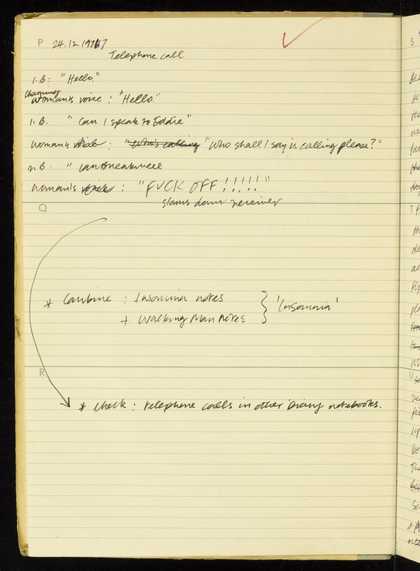 P 24.12.1967
Telephone call
I.B: "Hello"
Charming
woman's voice : "Hello"
I.B. " Can I speak to Eddie"
woman's voice : "Who's calling" "Who shall I say is calling please?"
I.B. "
woman's voice : "FUCK OFF !!!!!"
slams down receiver
Q
* Combine : Insomnia notes
+ Walking Man Notes } 'Insomnia'
R
* Check : telephone calls in other Diary notebooks.